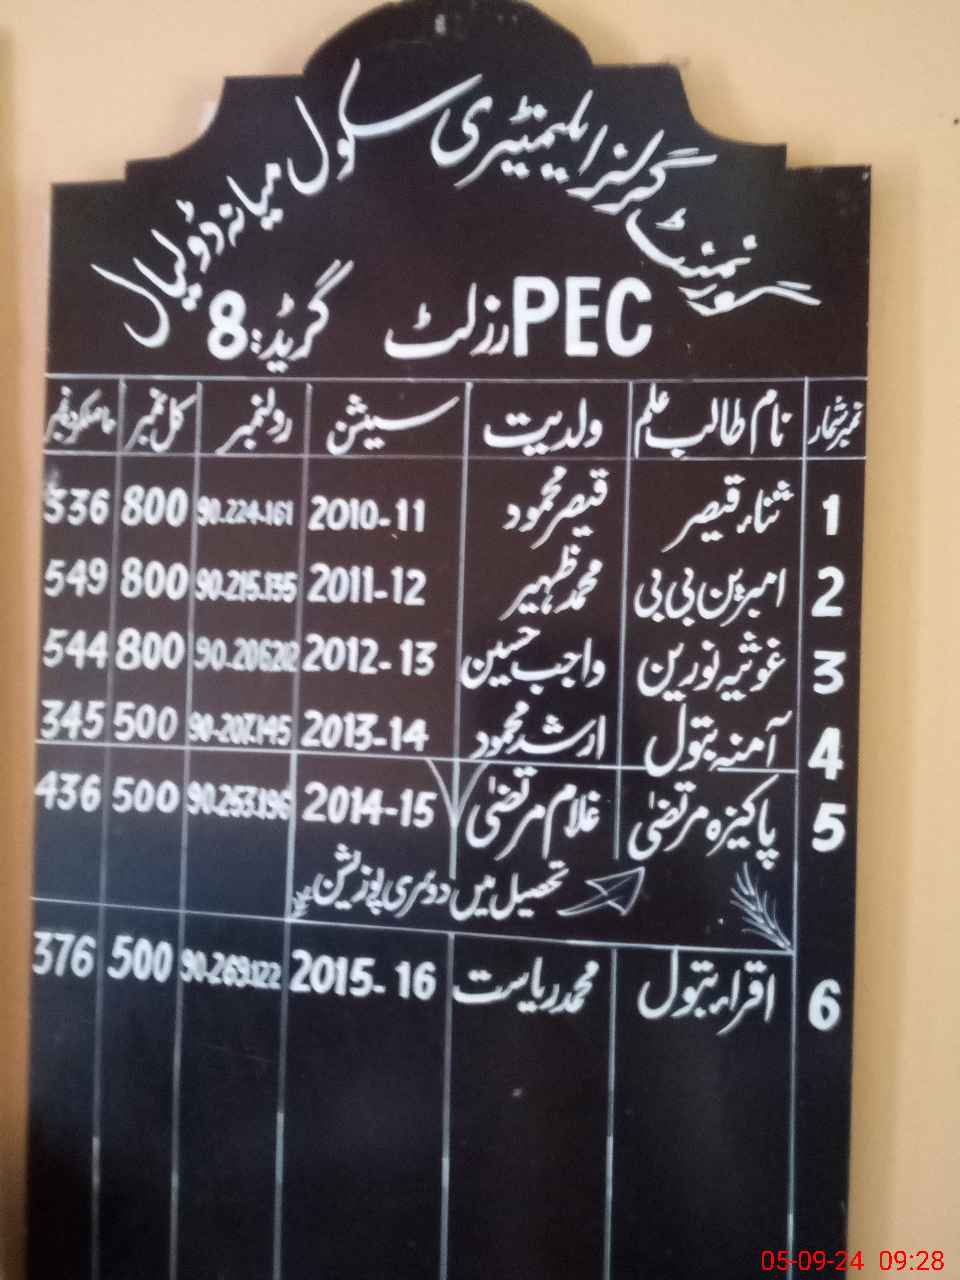 گورنمنٹ گرلز ایلیمنٹیری سکول میانہ ڈولیال
PEC رزلٹ گریڈ: 8
نمبر شمار نام طالب علم ولدیت سیشن رولنمبر کل نمبر حاصلکردہ نمبر
1 ثناء قیصر قیصر محمود 2010-11 90-224-161 800 336
2 امبرین بی بی محمد ظہیر 2011-12 90-215-135 800 549
3 غوثیہ نورین واجب حسین 2012-13 90-206212 800 544
4 آمنہ بتول ارشد محمود 2013-14 90-207-145 500 345
5 پاکیزہ مرتضیٰ غلام مرتضیٰ 2014-15 90-253-196 500 436
تحصیل میں دوسری پوزیشن
6 اقراء بتول محمد ریاست 2015-16 90-269-122 500 376
05-09-24 09:28